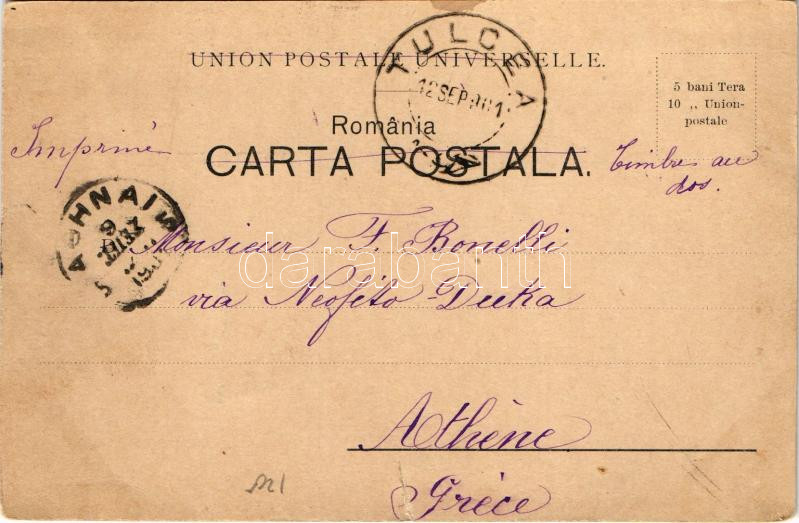 UNION POSTALE UNIVERSELLE.
TULCEA
12 SEP 901
5 bani Tera
10 „ Union-
postale
România
CARTA POSTALA.
Imprimé
Timbre au
dos.
ΑΘΗΝΑΙ 5
6
ΣΕΠΤ.
Monsieur F. Bonelli
via Neofito Duka
darabanth
Athène
Grèce